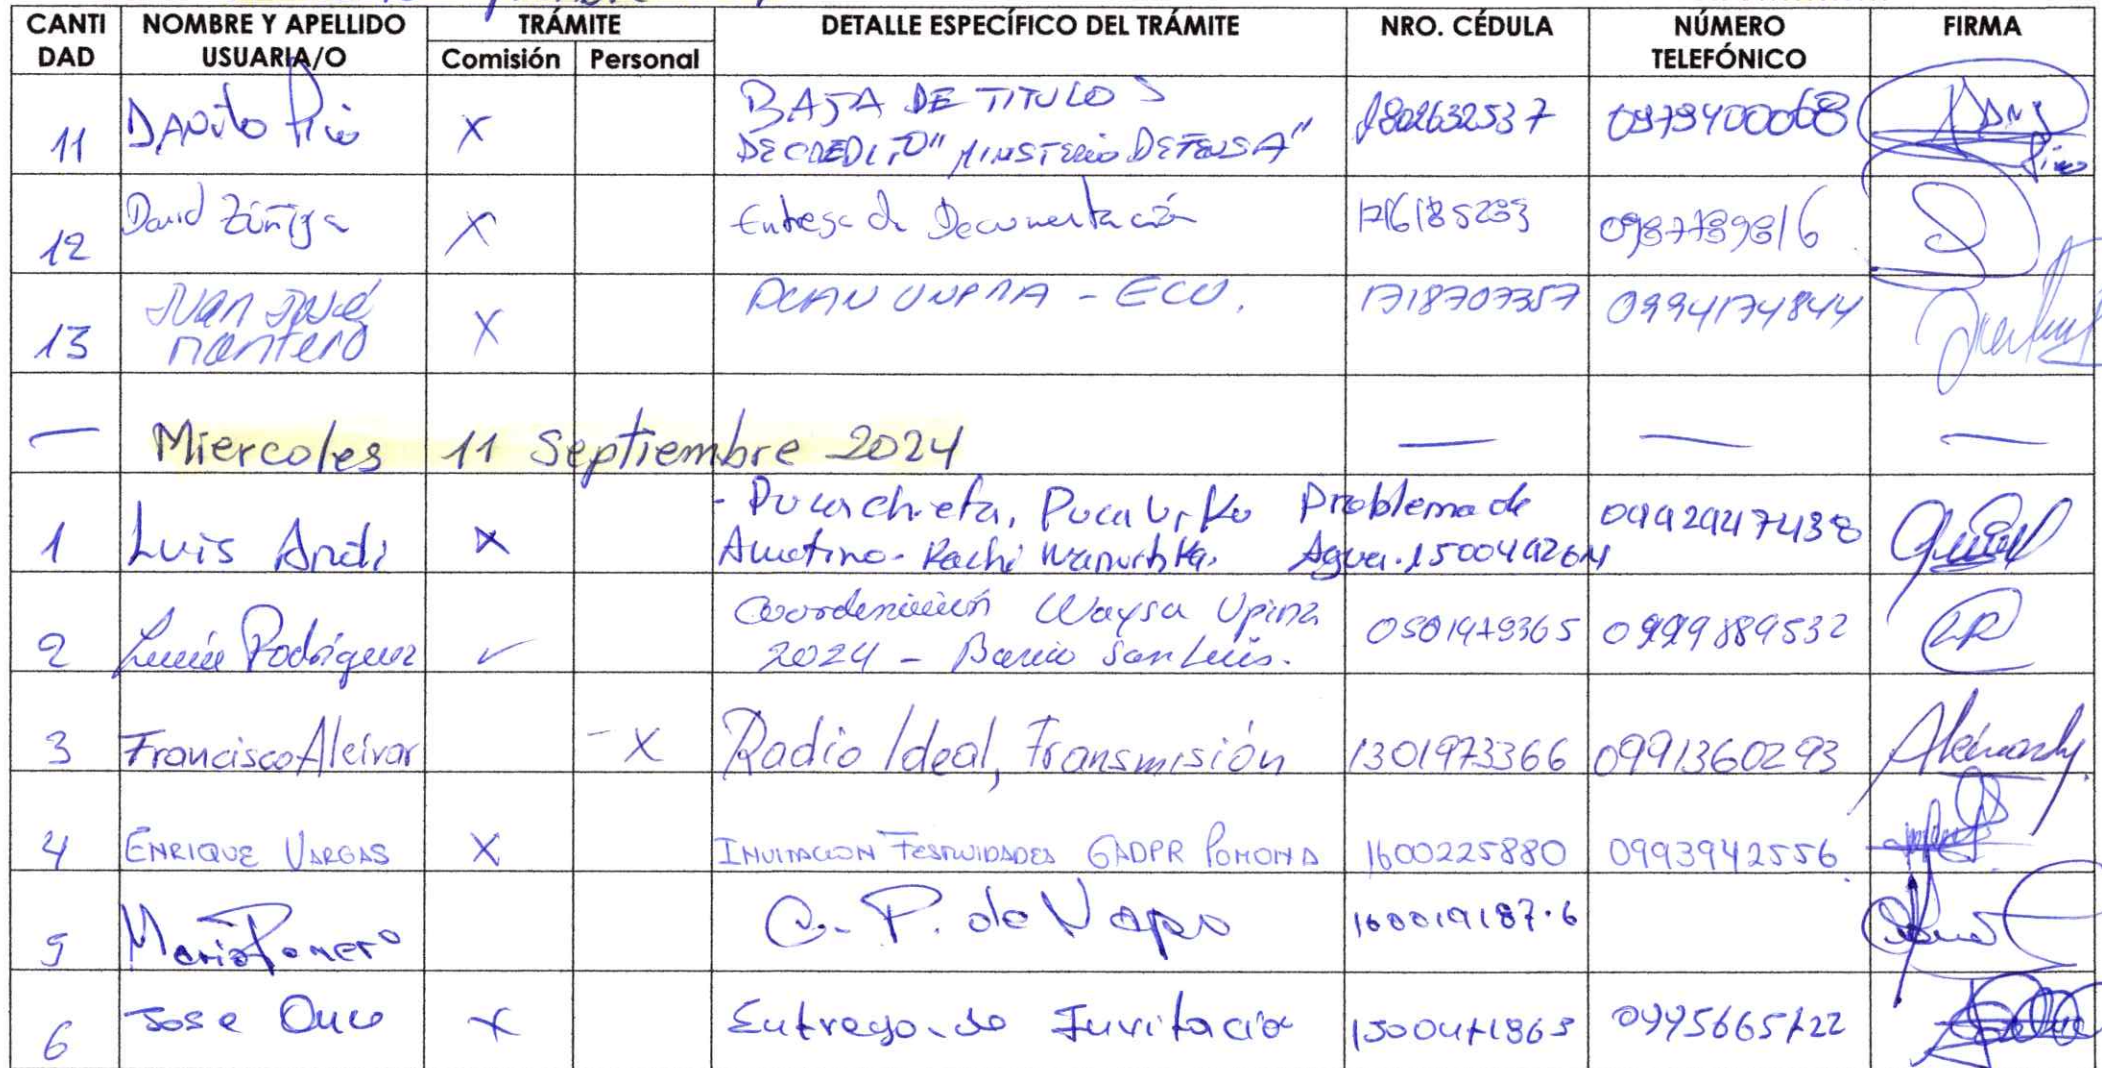 CANTI DAD NOMBRE Y APELLIDO USUARIA/O TRÁMITE Comisión Personal DETALLE ESPECÍFICO DEL TRÁMITE NRO. CÉDULA NÚMERO TELEFÓNICO FIRMA
11 DANilo Pico X BAJA DE TITULOS
DE CREDITO "MINISTERIO DEFENSA" 1802632537 0979400068
12 David Zúñiga X Entrega de Documentación 1716185233 0987789816
13 JUAN JOSÉ
MONTERO X 1718707357 0994174844
— Miercoles 11 Septiembre 2024 — — —
1 Luis Andi X Problema de
Agua. 0992947438
2 Lucía Rodríguez ✓ Coordinación Waysa Upina
2024 - Barrio San Luis. 0501979365 0999889532 LR
3 Francisco Alcívar - X Radio Ideal, Transmisión 1301973366 0991360293
4 ENRIQUE VARGAS X INVITACION FESTIVIDADES GADPR POMONA 1600225880 0993942556
5 Mario Romero C. P. de Napo 160019187-6
6 Jose X Entrega de Invitacio 0995665722